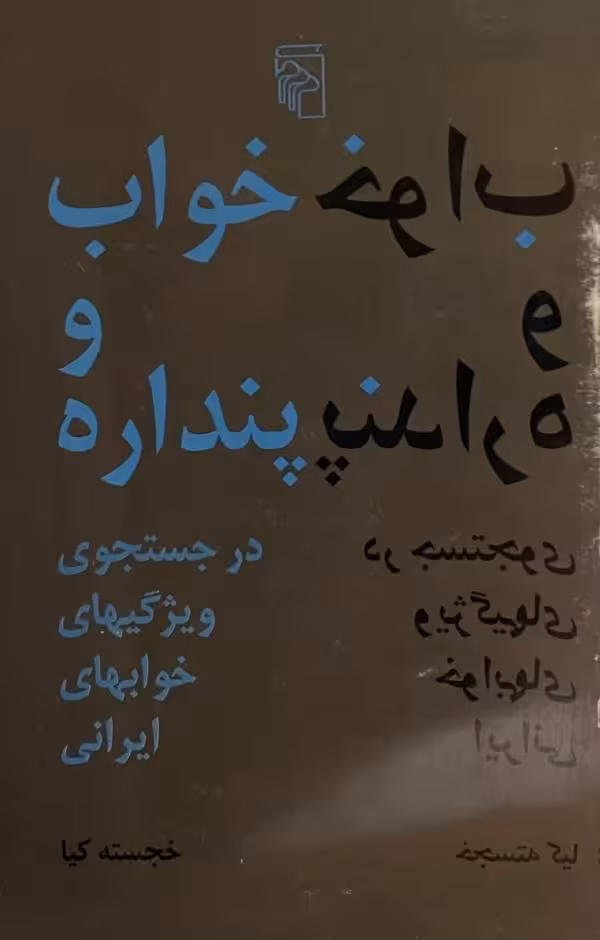 خواب
و
پنداره
در جستجوی
ویژگیهای
خوابهای
ایرانی
خجسته کیا